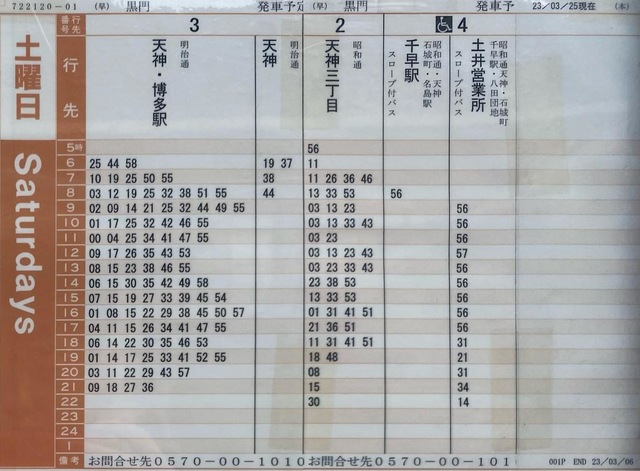 722120-01 (早) 黒門 発車予定 (早) 黒門 発車予 23/03/25現在 (木)
土曜日
Saturdays
番号 行先 3 2 4
行先
天神・博多駅 明治通
天神 明治通
天神三丁目 昭和通
千早駅 昭和通・天神 石城町・名島駅 スロープ付バス
土井営業所 昭和通天神・石城町 千早駅・八田団地 スロープ付バス
5時 56
6 25 44 58 19 37 11
7 10 19 25 50 55 38 11 26 36 46
8 03 12 19 25 32 38 51 55 44 13 33 53 56
9 02 09 14 21 25 32 44 49 55 03 13 23 56
10 01 17 25 32 42 46 55 03 13 33 43 56
11 00 04 25 34 41 47 55 03 23 56
12 09 17 26 35 43 53 03 13 23 43 57
13 08 15 23 38 46 55 03 23 33 43 56
14 06 15 30 35 42 49 58 23 38 53 56
15 07 15 19 27 33 39 45 54 13 33 53 56
16 01 08 15 22 29 38 45 50 57 01 31 41 51 56
17 04 11 15 26 34 41 47 55 21 36 51 56
18 06 14 22 30 35 46 53 11 31 41 51 31
19 01 14 17 25 33 41 52 55 18 48 21
20 03 11 22 29 43 57 08 31
21 09 18 27 36 15 34
22 30 14
23
24
1
備考 お問合せ先0570-00-1010 お問合せ先0570-00-101 001P END 23/03/06